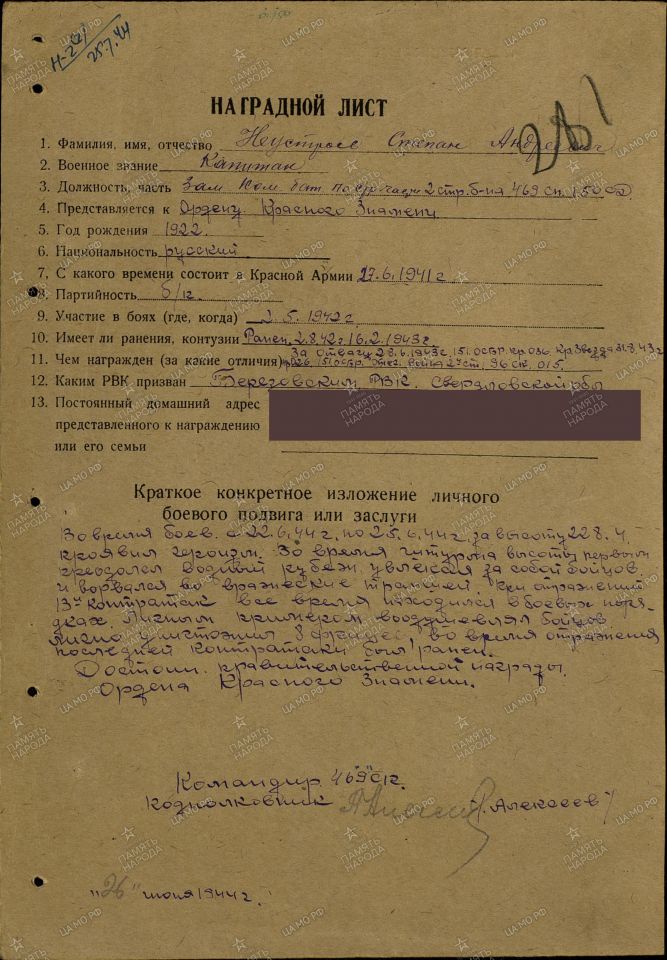 Н-261
25.7.44
НАГРАДНОЙ ЛИСТ
1. Фамилия, имя, отчество Неустроев Степан Андреевич
2. Военное звание Капитан
3. Должность, часть Зам. Ком. бат. по стр. части 2 стр. б-на 469 сп. 150 СД.
4. Представляется к Ордену Красного Знамени
5. Год рождения 1922
6. Национальность русский
7. С какого времени состоит в Красной Армии 27.6.1941 г
8. Партийность б/п.
9. Участие в боях (где, когда) 2.5.1942 г
10. Имеет ли ранения, контузии Ранен 2.8.42 г. 16.2.1943 г.
За отвагу 28.6.1943 г. 151 остр. Кр. Звезда 31.8.43 г
11. Чем награжден (за какие отличия) 151 остр. Отеч. война 2 ст. 96 ск. 015
12. Каким РВК призван Березовским РВК. Свердловской обл
13. Постоянный домашний адрес
представленного к награждению
или его семьи
Краткое конкретное изложение личного
боевого подвига или заслуги
Во время боев с 22.6.44 г. по 25.6.44 г. за высоту 228.4.
проявил героизм. Во время штурма высоты первым
преодолел водный рубеж, увлекая за собой бойцов
и ворвался во вражеские траншеи. При отражении
13ти контратак все время находился в боевых поряд-
ках. Личным примером воодушевлял бойцов.
Лично уничтожил 8 фрицев, во время отражения
последней контратаки был ранен.
Достоин правительственной награды.
Ордена Красного Знамени.
Командир 469 СП.
подполковник /Алексеев/
"26" июня 1944 г.
ПАМЯТЬ НАРОДА
ЦАМО.РФ